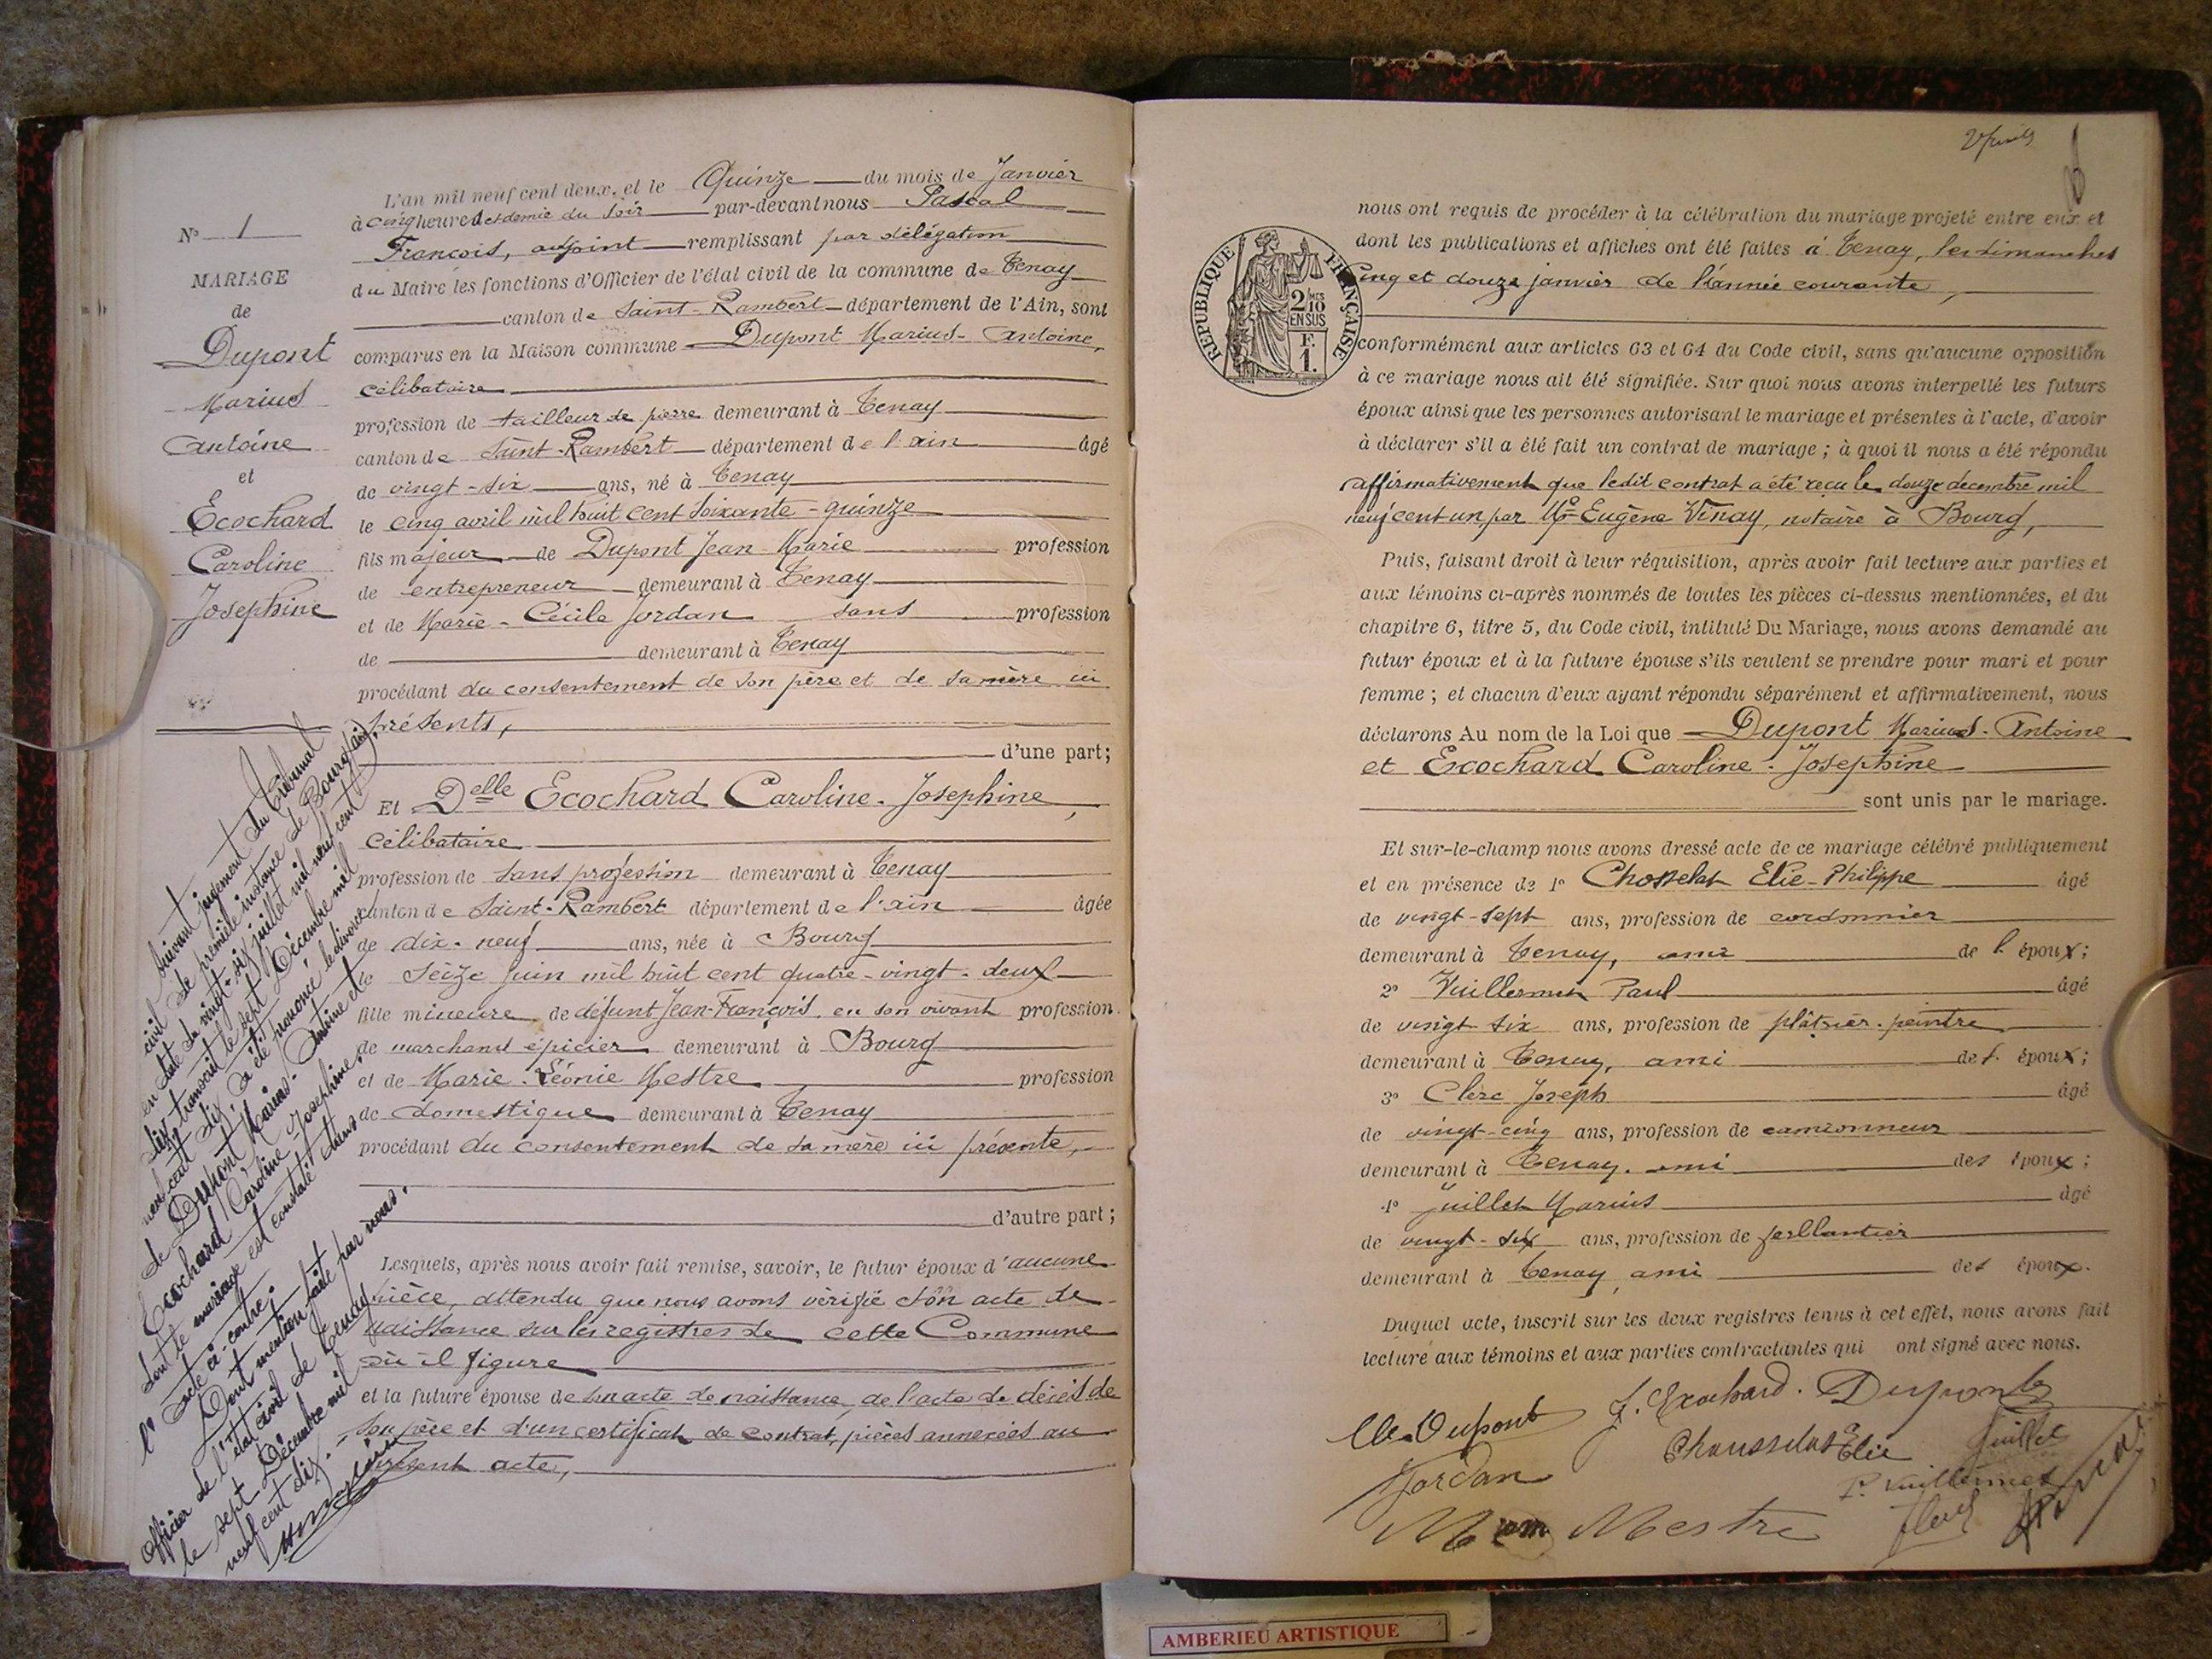 N° 1
MARIAGE
de
Dupont
Marius
Antoine
et
Ecochard
Caroline
Josephine
L'an mil neuf cent deux, et le Quinze du mois de Janvier
à cinq heures et demie du soir par-devant nous Pascal
François, adjoint remplissant par délégation
du Maire les fonctions d'Officier de l'état civil de la commune de Tenay
canton de Saint-Rambert département de l'Ain, sont
comparus en la Maison commune Dupont Marius-Antoine,
célibataire
profession de tailleur de pierre demeurant à Tenay
canton de Saint-Rambert département de l'ain âgé
de vingt-six ans, né à Tenay
le cinq avril mil huit cent soixante-quinze
fils majeur de Dupont Jean Marie profession
de entrepreneur demeurant à Tenay
et de Marie-Cécile Jordan sans profession
de demeurant à Tenay
procédant du consentement de son père et de sa mère ici
présents,
d'une part;
Et Delle Ecochard Caroline-Josephine,
célibataire
profession de sans profession demeurant à Tenay
canton de Saint-Rambert département de l'ain âgée
de dix-neuf ans, née à Bourg
le seize juin mil huit cent quatre-vingt-deux
fille mineure de défunt Jean-François, en son vivant profession
de marchand épicier demeurant à Bourg
et de Marie-Léonie Mestre profession
de domestique demeurant à Tenay
procédant du consentement de sa mère ici présente,
d'autre part;
Lesquels, après nous avoir fait remise, savoir, le futur époux d'aucune
pièce, attendu que nous avons vérifié son acte de
naissance sur les registres de cette Commune
où il figure
et la future épouse de son acte de naissance, de l'acte de décès de
son père et d'un certificat de contrat, pièces annexées au
présent acte,
Suivant jugement du Tribunal
civil de première instance de Bourg (ain)
en date du vingt-six juillet mil neuf cent
dix transcrit le sept Décembre mil
neuf cent dix, a été prononcé le divorce
de Dupont Marius-Antoine et de
Ecochard Caroline-Josephine,
dont le mariage est constaté dans
l'acte ci-contre.
Dont mention faite par nous.
Officier de l'état civil de Tenay
le sept Décembre mil
neuf cent dix.
nous ont requis de procéder à la célébration du mariage projeté entre eux et
dont les publications et affiches ont été faites à Tenay, les dimanches
Cinq et douze janvier de l'année courante,
REPUBLIQUE FRANÇAISE
2/10 MES
EN SUS
F.
1.
conformément aux articles 63 et 64 du Code civil, sans qu'aucune opposition
à ce mariage nous ait été signifiée. Sur quoi nous avons interpellé les futurs
époux ainsi que les personnes autorisant le mariage et présentes à l'acte, d'avoir
à déclarer s'il a été fait un contrat de mariage; à quoi il nous a été répondu
affirmativement que ledit contrat a été reçu le douze decembre mil
neuf cent un par Me Eugène Vinay, notaire à Bourg,
Puis, faisant droit à leur réquisition, après avoir fait lecture aux parties et
aux témoins ci-après nommés de toutes les pièces ci-dessus mentionnées, et du
chapitre 6, titre 5, du Code civil, intitulé Du Mariage, nous avons demandé au
futur époux et à la future épouse s'ils veulent se prendre pour mari et pour
femme; et chacun d'eux ayant répondu séparément et affirmativement, nous
déclarons Au nom de la Loi que Dupont Marius-Antoine
et Ecochard Caroline-Josephine
sont unis par le mariage.
Et sur-le-champ nous avons dressé acte de ce mariage célébré publiquement
et en présence de 1° Chosselat Elie-Philippe âgé
de vingt-sept ans, profession de cordonnier
demeurant à Tenay, ami de l'époux;
2° Vuillermet Paul âgé
de vingt six ans, profession de plâtrier-peintre
demeurant à Tenay, ami de l'époux;
3° Clerc Joseph âgé
de vingt-cinq ans, profession de camionneur
demeurant à Tenay, ami des époux;
4° Juillet Marius âgé
de vingt-six ans, profession de ferblantier
demeurant à Tenay ami des époux.
Duquel acte, inscrit sur les deux registres tenus à cet effet, nous avons fait
lecture aux témoins et aux parties contractantes qui ont signé avec nous.
Dupont J. Ecochard. Dupont
Jordan Elie Juillet
P. Vuillermet
Mestre
AMBERIEU ARTISTIQUE